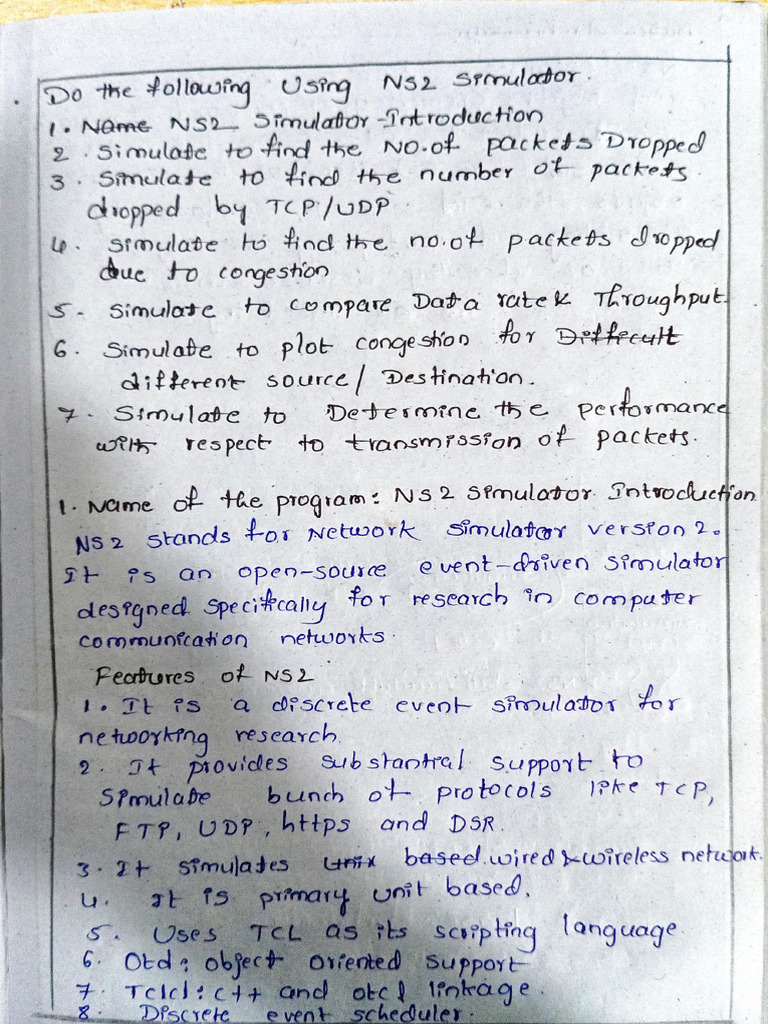 Do the following Using NS2 Simulator.
1. Name NS2 Simulator-Introduction
2. Simulate to find the No.of packets Dropped
3. Simulate to find the number of packets
dropped by TCP/UDP
4. Simulate to find the no.of packets dropped
due to congestion
5. Simulate to compare Data rate & Throughput
6. Simulate to plot congestion for Difficult
different source/ Destination.
7. Simulate to Determine the performance
with respect to transmission of packets.
1. Name of the program: NS2 Simulator Introduction
NS2 stands for Network Simulator version 2.
It is an open-source event-driven simulator
designed specifically for research in computer
communication networks.
Features of NS2
1. It is a discrete event simulator for
networking research.
2. It provides substantial support to
simulate bunch of protocols like TCP,
FTP, UDP, https and DSR.
3. It simulates Unix based wired & wireless network.
4. It is primary unit based.
5. Uses TCL as its scripting language.
6. Otcl: object oriented support
7. Tclcl: c++ and otcl linkage.
8. Discrete event scheduler.